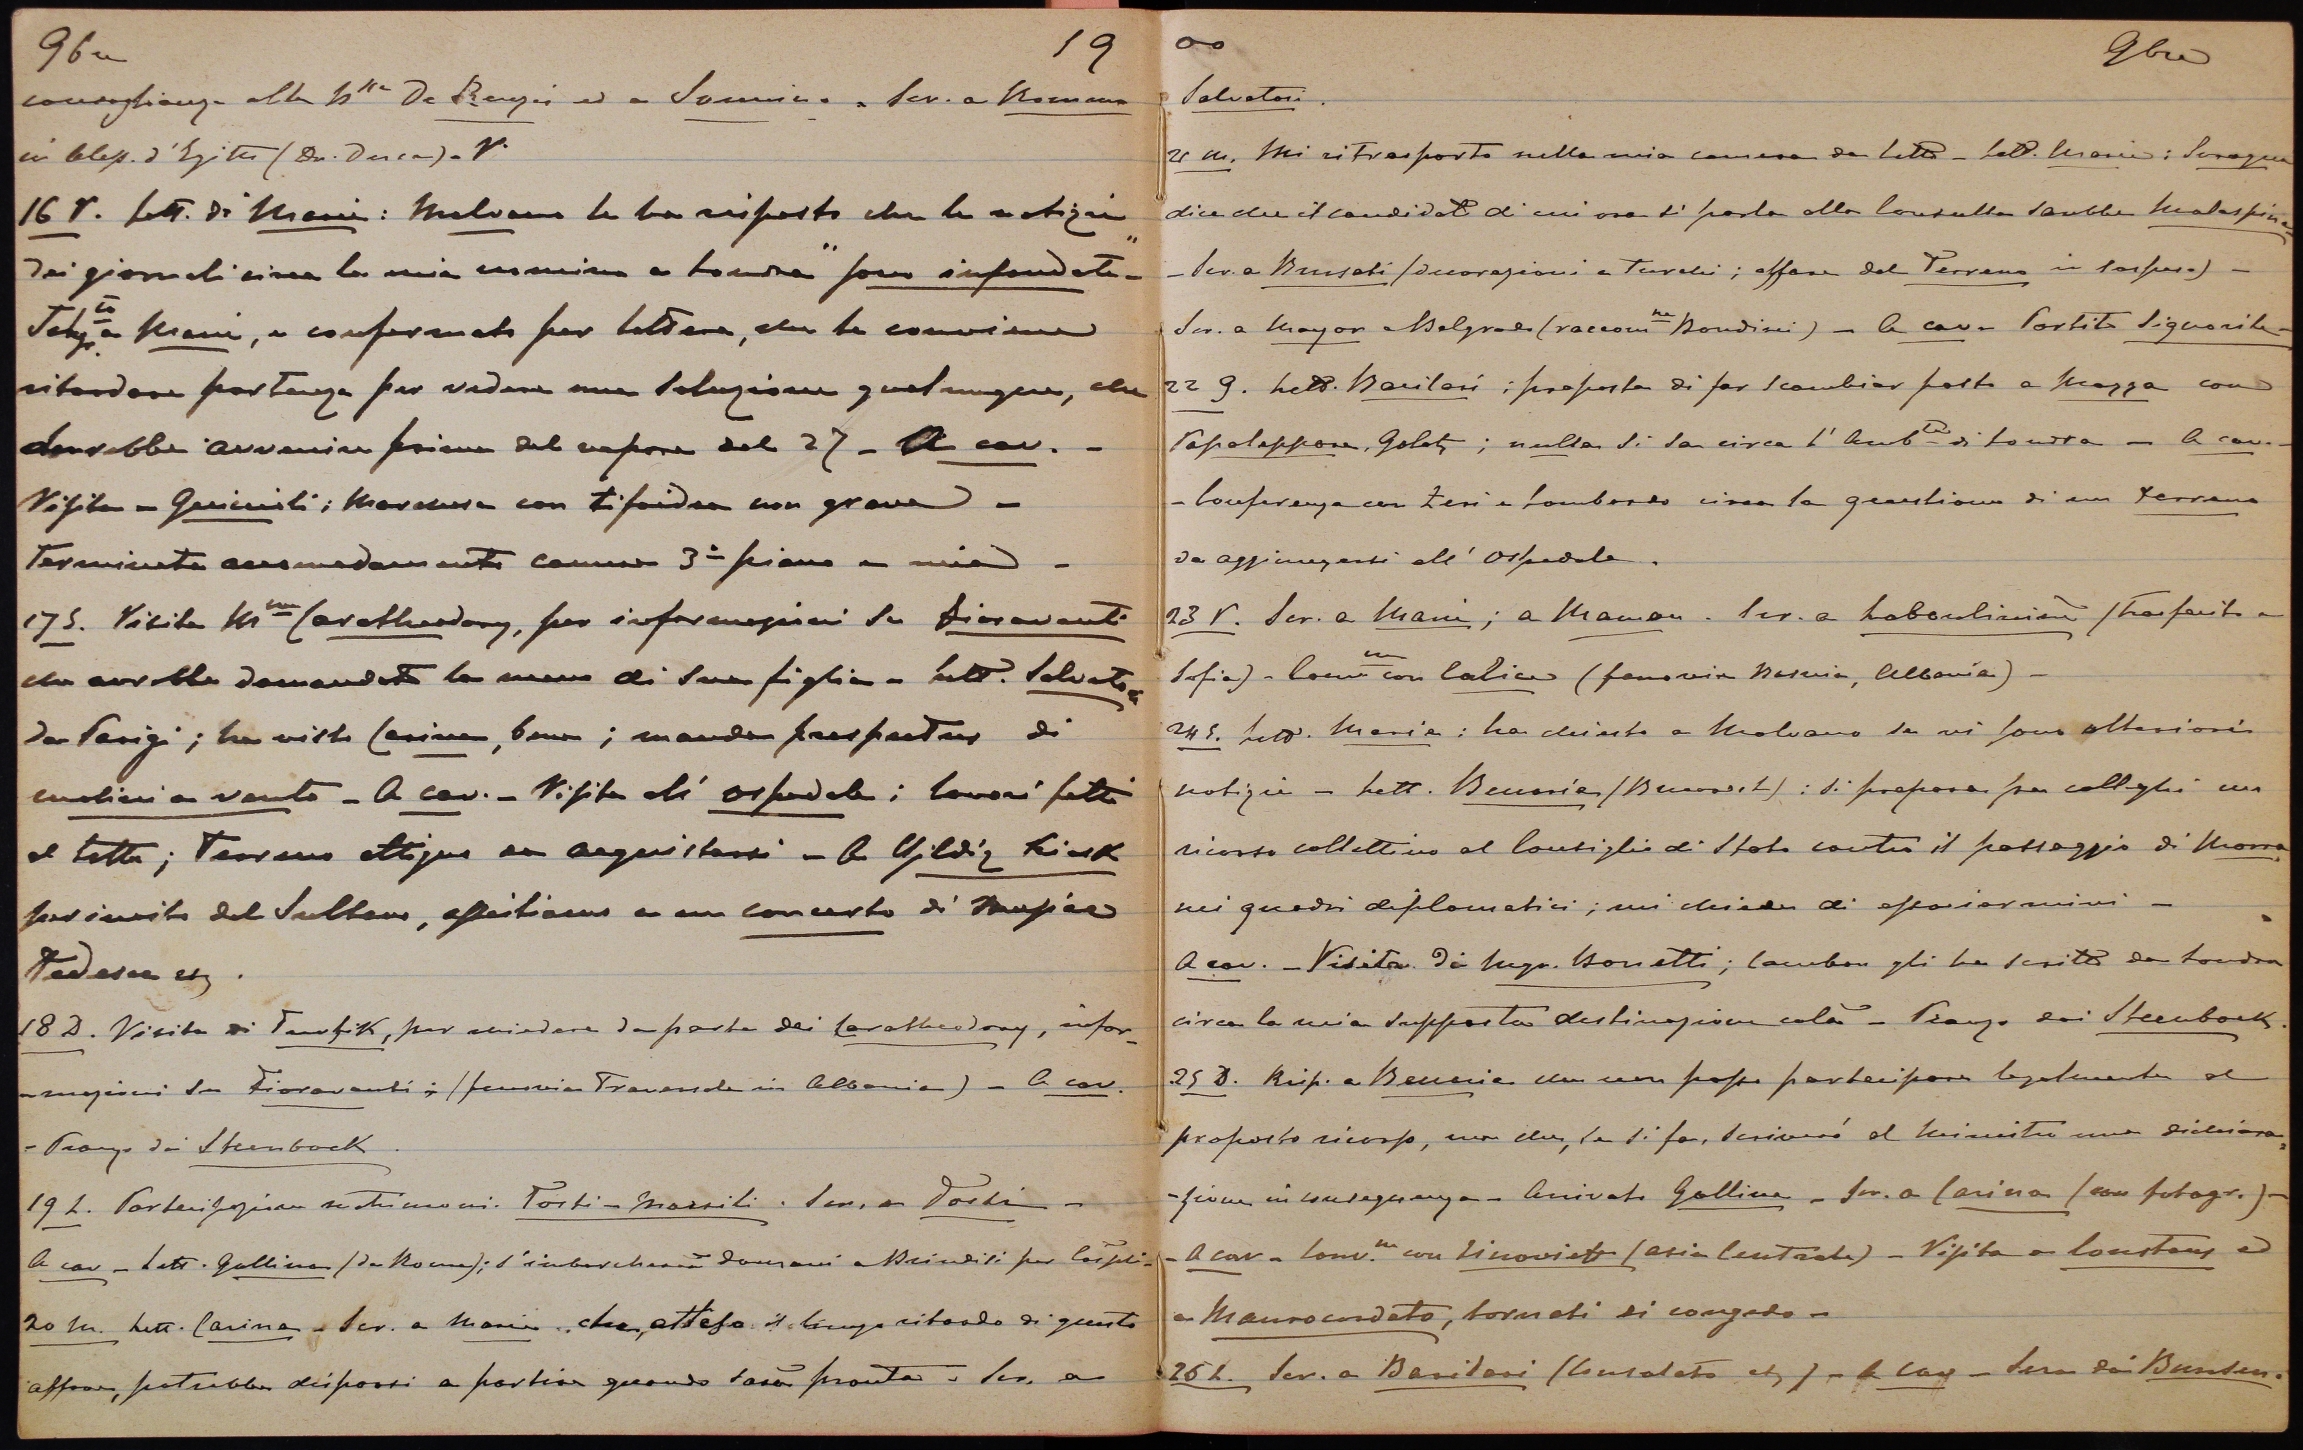 9bre 19
condoglianze alla Bssa De Renzis ed a Sonnino - Scr. a Romano
in Aless. d'Egitto (Du. Ducas) - V.
16 V. Lett. di Maria: Malvano le ha risposto che le notizie
dei giornali circa la mia nomina a Londra "sono infondate" -
Telegr.to a Maria, e confermato per lettera, che le conviene
ritardare partenza per vedere una soluzione qualunque, che
dovrebbe avvenire prima del vapore del 27 - A cav. -
Visita a Guiccioli: Marchesa con tifoidea non grave -
Terminato accomodamento camera 3° piano a mia -
17 S. Visita Mme Caratheodory, per informazioni su Fioravanti
che avrebbe domandato la mano di sua figlia - Lett. Salvatori
da Parigi; ha visto Carina, bene; manda prospectus di
mulini a vento - A cav. - Visita all'ospedale; lavori fatti
al tetto; Terreno attiguo da acquistarsi - A Yildiz Kiosk
per invito del Sultano, assistiamo a un concerto di Musica
Tedesca etc.
18 D. Visita di Tewfik, per chiedere da parte dei Caratheodory, infor-
-mazioni su Fioravanti; (ferrovia Traversale in Albania) - A cav.
- Pranzo dai Steenbock.
19 L. Partecipazione matrimonio Tosti - Marsili. Scr. a Tosti -
A cav - Lett. Gallina (da Roma); s'imbarcherà domani a Brindisi per Cospoli -
20 M. Lett. Carina - Scr. a Maria che, atteso il lungo ritardo di questo
affare, potrebbe disporsi a partire quando sarà pronta - Scr. a
00 9bre
Salvatori.
21 M. Mi ritrasporto nella mia camera da letto - Lett. Maria: Soragna
dice che il candidato di cui ora si parla alla Consulta sarebbe Malaspina
- Scr. a Brusati (decorazioni a Turchi; affare del Terreno in sospeso) -
Scr. a Mayor a Belgrado (raccom.ne Bondini) - A cav - Partito Signorile -
22 G. Lett. Barilari: proposta di far scambiar posto a Mazza con
Papaleppore, Galatz; nulla si sa circa l'Amb.ta di Londra - A cav. -
- Conferenza con Zeri e Lombardo circa la questione di un terreno
da aggiungersi all'Ospedale.
23 V. Scr. a Maria; a Maman. Scr. a Laboulinière (trasferito a
Sofia) - Conv.ne con Calice (ferrovia Bosnia, Albania) -
24 S. Lett. Maria: ha chiesto a Malvano se vi sono ulteriori
notizie - Lett. Beccaria (Bucarest): si prepara fra colleghi un
ricorso collettivo al Consiglio di Stato contro il passaggio di Morra
nei quadri diplomatici; mi chiede di associarmivi -
A cav. - Visita di Mgr. Bonetti; Cambon gli ha scritto da Londra
circa la mia supposta destinazione colà - Pranzo dai Steenbock.
25 D. Risp. a Beccaria che non posso partecipare legalmente al
proposto ricorso, ma che, se si fa, scriverò al Ministro una dichiara-
-zione in conseguenza - Arrivato Gallina - Scr. a Carina (con fotogr.) -
- A cav - Conv.ne con Zinoviev (Asia Centrale) - Visita a Constans ed
a Maurocordato, tornati di congedo -
26 L. Scr. a Barilari (Consolato etc) - A cav - Sera dai Bunsen.